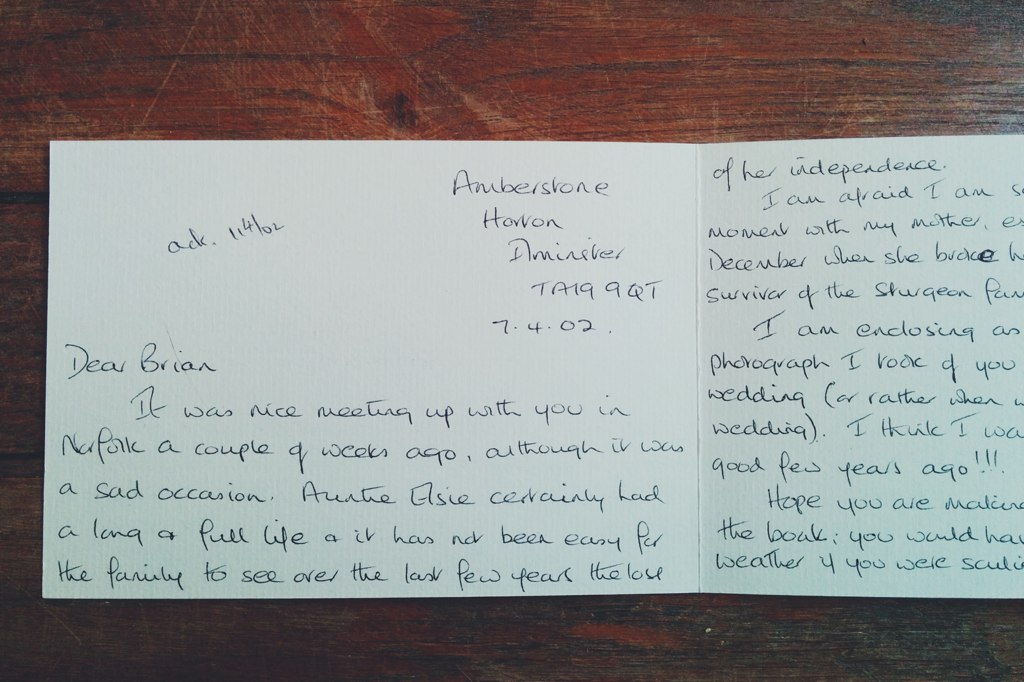 Amberstone
Horton
Ilminster
TA19 9QT
7.4.02.
ack. 11/4/02
Dear Brian
It was nice meeting up with you in
Norfolk a couple of weeks ago, although it was
a sad occasion. Auntie Elsie certainly had
a long & full life & it has not been easy for
the family to see over the last few years the loss
of her independence.
I am afraid I am
moment with my mother,
December when she broke
survivor of the Sturgeon
I am enclosing
photograph I took of you
wedding (or rather when
wedding). I think I
good few years ago!!!
Hope you are
the boat; you would
weather if you were